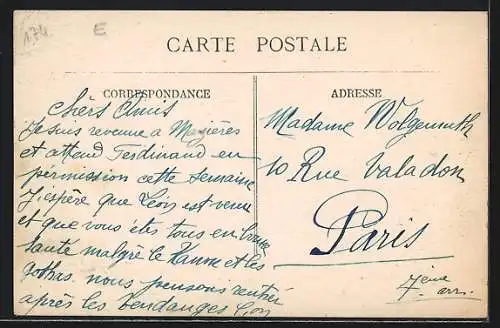 174
E
CARTE POSTALE
CORRESPONDANCE
ADRESSE
Chers Amis
Je suis revenue a Mazières
et attend Ferdinand en
permission cette semaine
J'espère que Léon est venu
et que vous êtes tous en bonne
santé malgré le et les
gothas. nous pensons rentrer
après les vendanges
Madame Wolgemuth
10 Rue Valadon
Paris
7ème
arr.